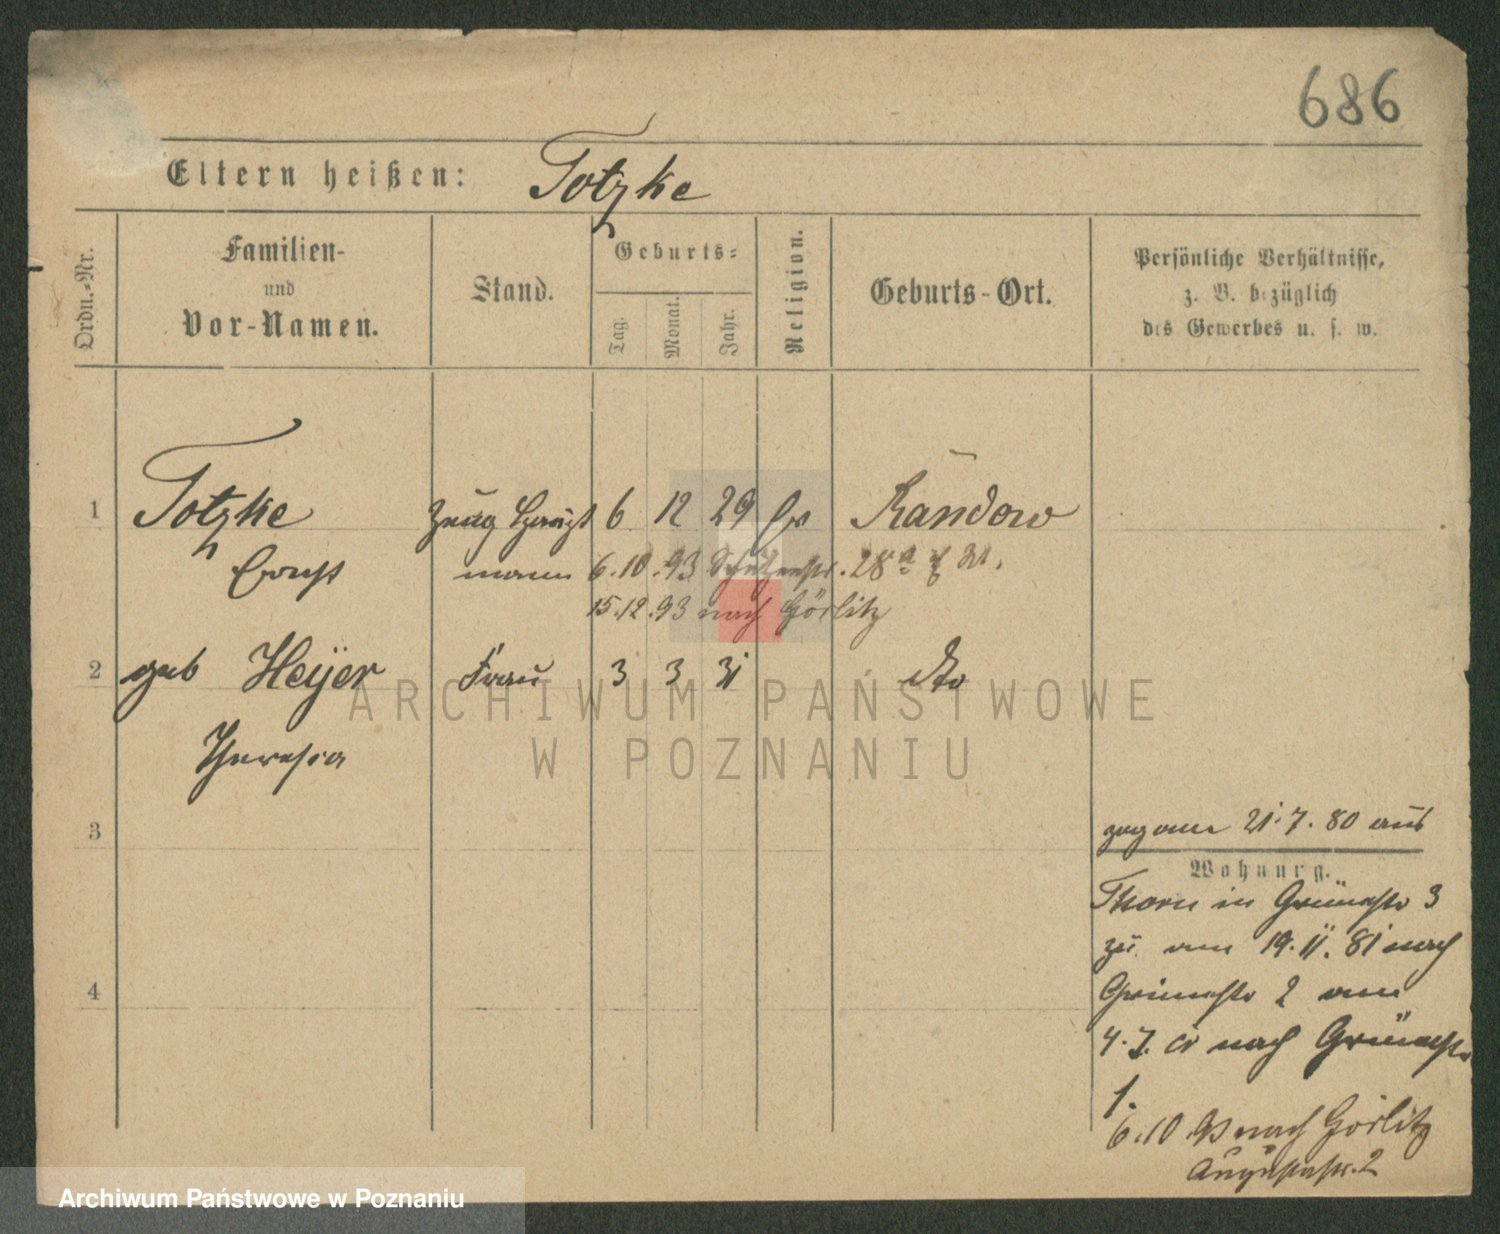 686
Eltern heißen: Totzke
Ordn.-Nr.
Familien-
und
Vor-Namen.
Stand.
Geburts-
Tag.
Monat.
Jahr.
Religion.
Geburts-Ort.
Persönliche Verhältnisse,
z. B. bezüglich
des Gewerbes u. s. w.
1 Totzke Zeug Haupt 6 12 29 Randow
Ernst mann 6.10.93 Schützenstr. 28a
15.12.93 nach Görlitz
2 geb Heÿer Frau 3 3 31 dto
Theresia
ARCHIWUM PAŃSTWOWE
W POZNANIU
3
zugom 21.7.80 aus
Wohnung.
Thorn in Grünestr 3
zu am 19.11.81 nach
Grünestr 2 am
4.7. cr nach Grünestr
1.
4
6.10.93 nach Görlitz
Augustastr. 2
Archiwum Państwowe w Poznaniu